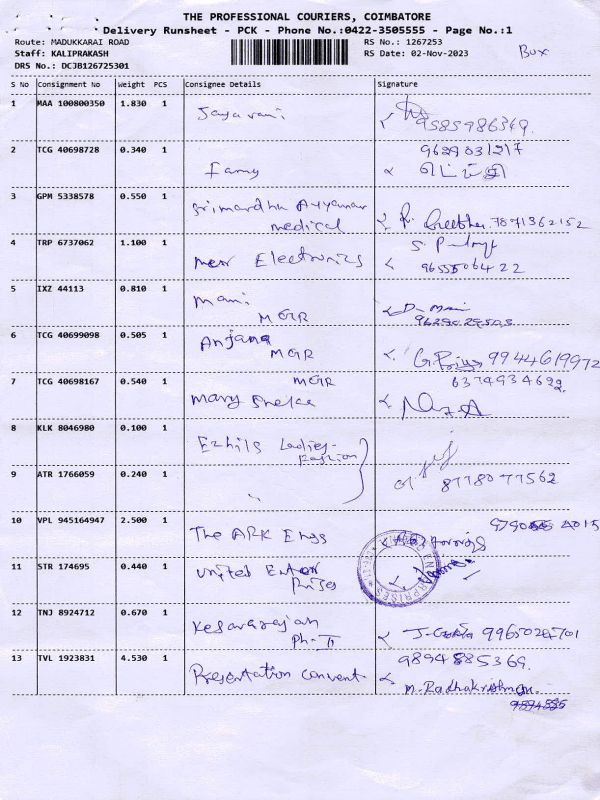 THE PROFESSIONAL COURIERS, COIMBATORE
Delivery Runsheet - PCK - Phone No.:0422-3505555 - Page No.:1
Route: MADUKKARAI ROAD
RS No.: 1267253
Staff: KALIPRAKASH
RS Date: 02-Nov-2023
Box
DRS No.: DCJB126725301
S No Consignment No Weight PCS Consignee Details Signature
1 MAA 100800350 1.830 1
Jayarani 9585986349.
2 TCG 40698728 0.340 1 9629031217
3 GPM 5338578 0.550 1
Srimardhu Ayyanar
medical 7871362152
4 TRP 6737062 1.100 1
Electronics 9655506422
5 IXZ 44113 0.810 1
Mani D- Mani
MGR
6 TCG 40699098 0.505 1
Anjana
MGR 9944619972
7 TCG 40698167 0.540 1 MGR 6374934692.
Mary
8 KLK 8046980 0.100 1
Ezhils Ladies-
Fashion
9 ATR 1766059 0.240 1
" 8778077562
10 VPL 945164947 2.500 1
The ARK Engs
11 STR 174695 0.440 1
United Enter
Prises
ENTERPRISES
12 TNJ 8924712 0.670 1
Kesavarajan
Ph-II
13 TVL 1923831 4.530 1 9894885369.
Presentation Convent M. Radhakrishnan.